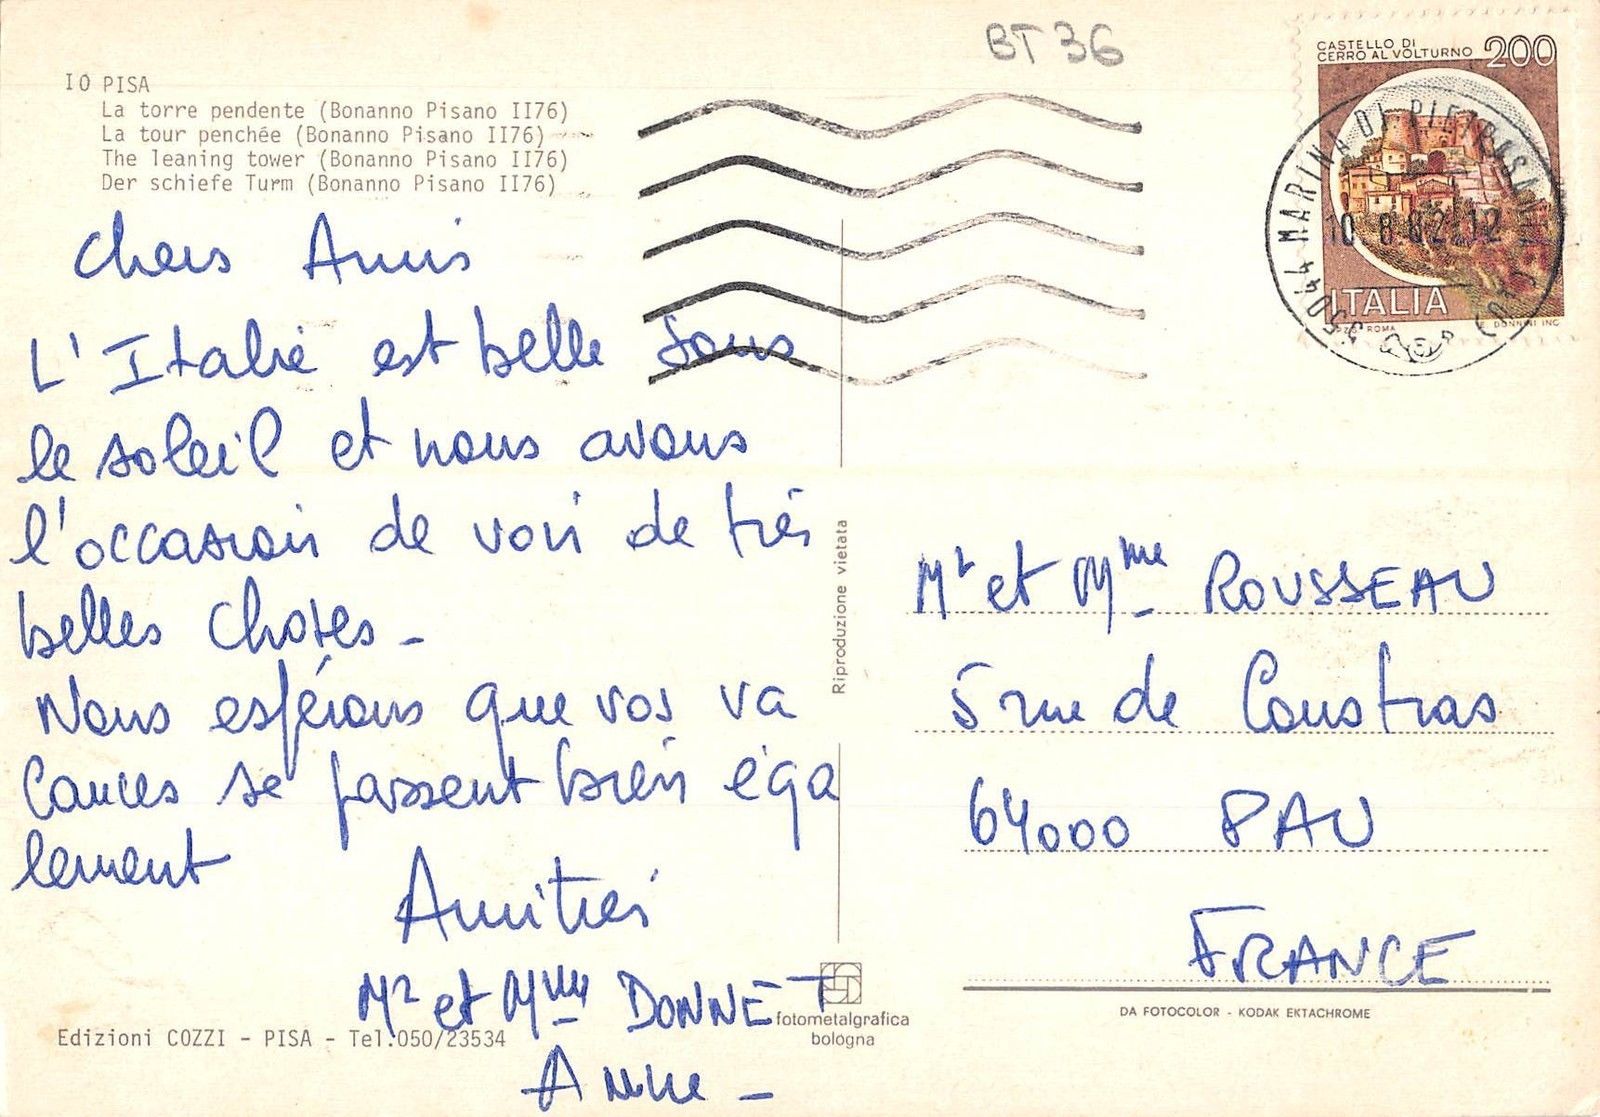 BT 36
I0 PISA
La torre pendente (Bonanno Pisano II76)
La tour penchée (Bonanno Pisano II76)
The leaning tower (Bonanno Pisano II76)
Der schiefe Turm (Bonanno Pisano II76)
CASTELLO DI
CERRO AL VOLTURNO 200
ITALIA
ROMA
55044 MARINA DI PIETRASANTA (LU)
10-8-82 12
Chers Amis
L'Italie est belle sous
le soleil et nous avons
l'occasion de voir de très
belles choses -
Nous espérons que vos va
cances se passent bien éga
lement
Amitiés
Mr et Mme DONNET
Anne -
Riproduzione vietata
Mr et Mme ROUSSEAU
5 rue de Coustras
64000 PAU
FRANCE
Edizioni COZZI - PISA - Tel.050/23534
fotometalgrafica
bologna
DA FOTOCOLOR - KODAK EKTACHROME